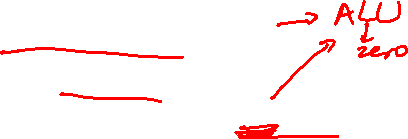 ALU
zero